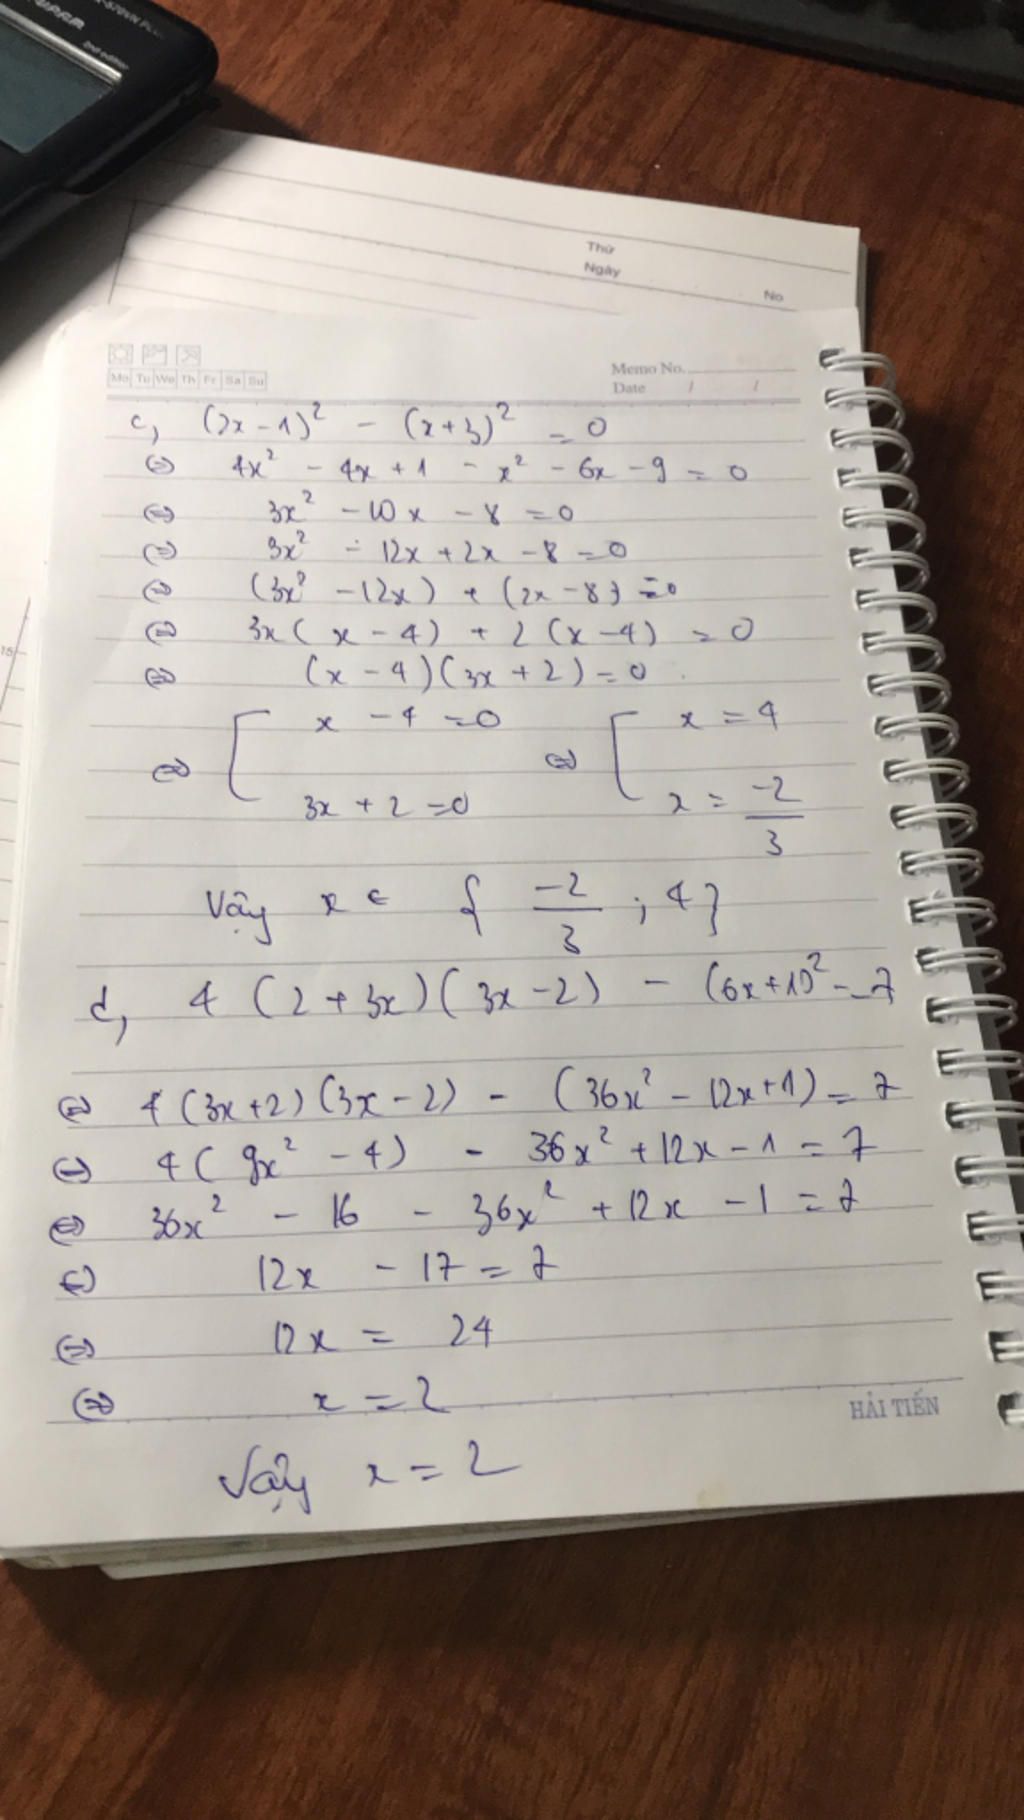 2nd edition
Thứ
Ngày
No
Mo Tu We Th Fr Sa Su
Memo No.
Date / /
c, (2x - 1)² - (x + 3)² = 0
⇔ 4x² - 4x + 1 - x² - 6x - 9 = 0
⇔ 3x² - 10x - 8 = 0
⇔ 3x² - 12x + 2x - 8 = 0
⇔ (3x² - 12x) + (2x - 8) = 0
⇔ 3x(x - 4) + 2(x - 4) = 0
⇔ (x - 4)(3x + 2) = 0
⇔ [ x - 4 = 0 ⇔ [ x = 4
3x + 2 = 0 x = -2/3
Vậy x ∈ { -2/3 ; 4}
d, 4(2 + 3x)(3x - 2) - (6x + 1)² = 7
⇔ 4(3x + 2)(3x - 2) - (36x² - 12x + 1) = 7
⇔ 4(9x² - 4) - 36x² + 12x - 1 = 7
⇔ 36x² - 16 - 36x² + 12x - 1 = 7
⇔ 12x - 17 = 7
⇔ 12x = 24
⇔ x = 2
HẢI TIẾN
Vậy x = 2